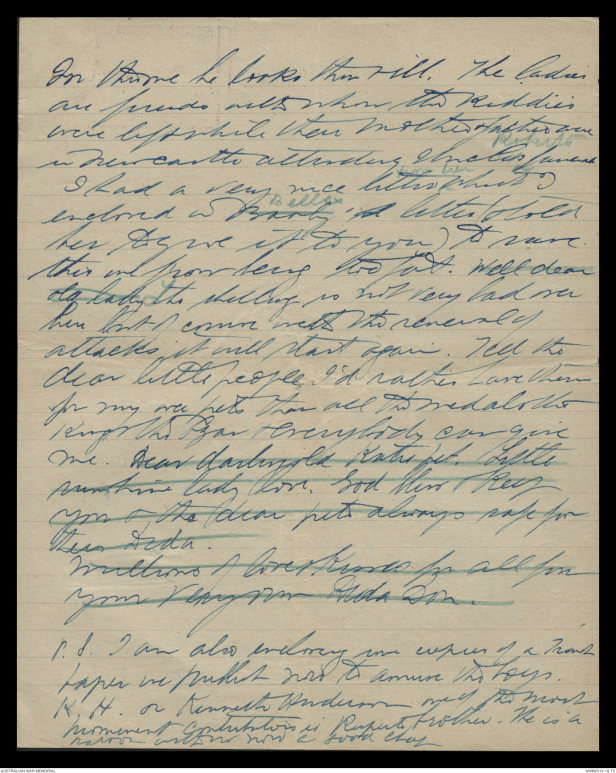 For throne he looks thin & ill. The ladies
are friends with whom the Kiddies
were left while their Mother & father are
in Newcastle attending Uncles funeral
Ruperts
I had a very nice letter which I
for her
enclosed in Bully's letter (& told
Belle
her to give it to you) to save
this one from being too fat. Well dear
old lady the shelling is not very bad over
here but of course with the renewal of
attacks it will start again. Tell the
dear little people I'd rather have them
for my wee pets than all the medals the
King & the Czar & everybody can give
me. Dear darling old Katie pet. Little
sunshine lady love. God bless & Keep
you & the dear pets always safe for
their Dida.
Millions of love & Kisses for all from
your very own Dida Don.
P.S. I am also enclosing some copies of a Trench
paper we publish now to amuse the boys.
K. H. or Kenneth Henderson one of the most
prominent contributors is Rupert's brother. He is a
parson with us now a good chap
AUSTRALIAN WAR MEMORIAL